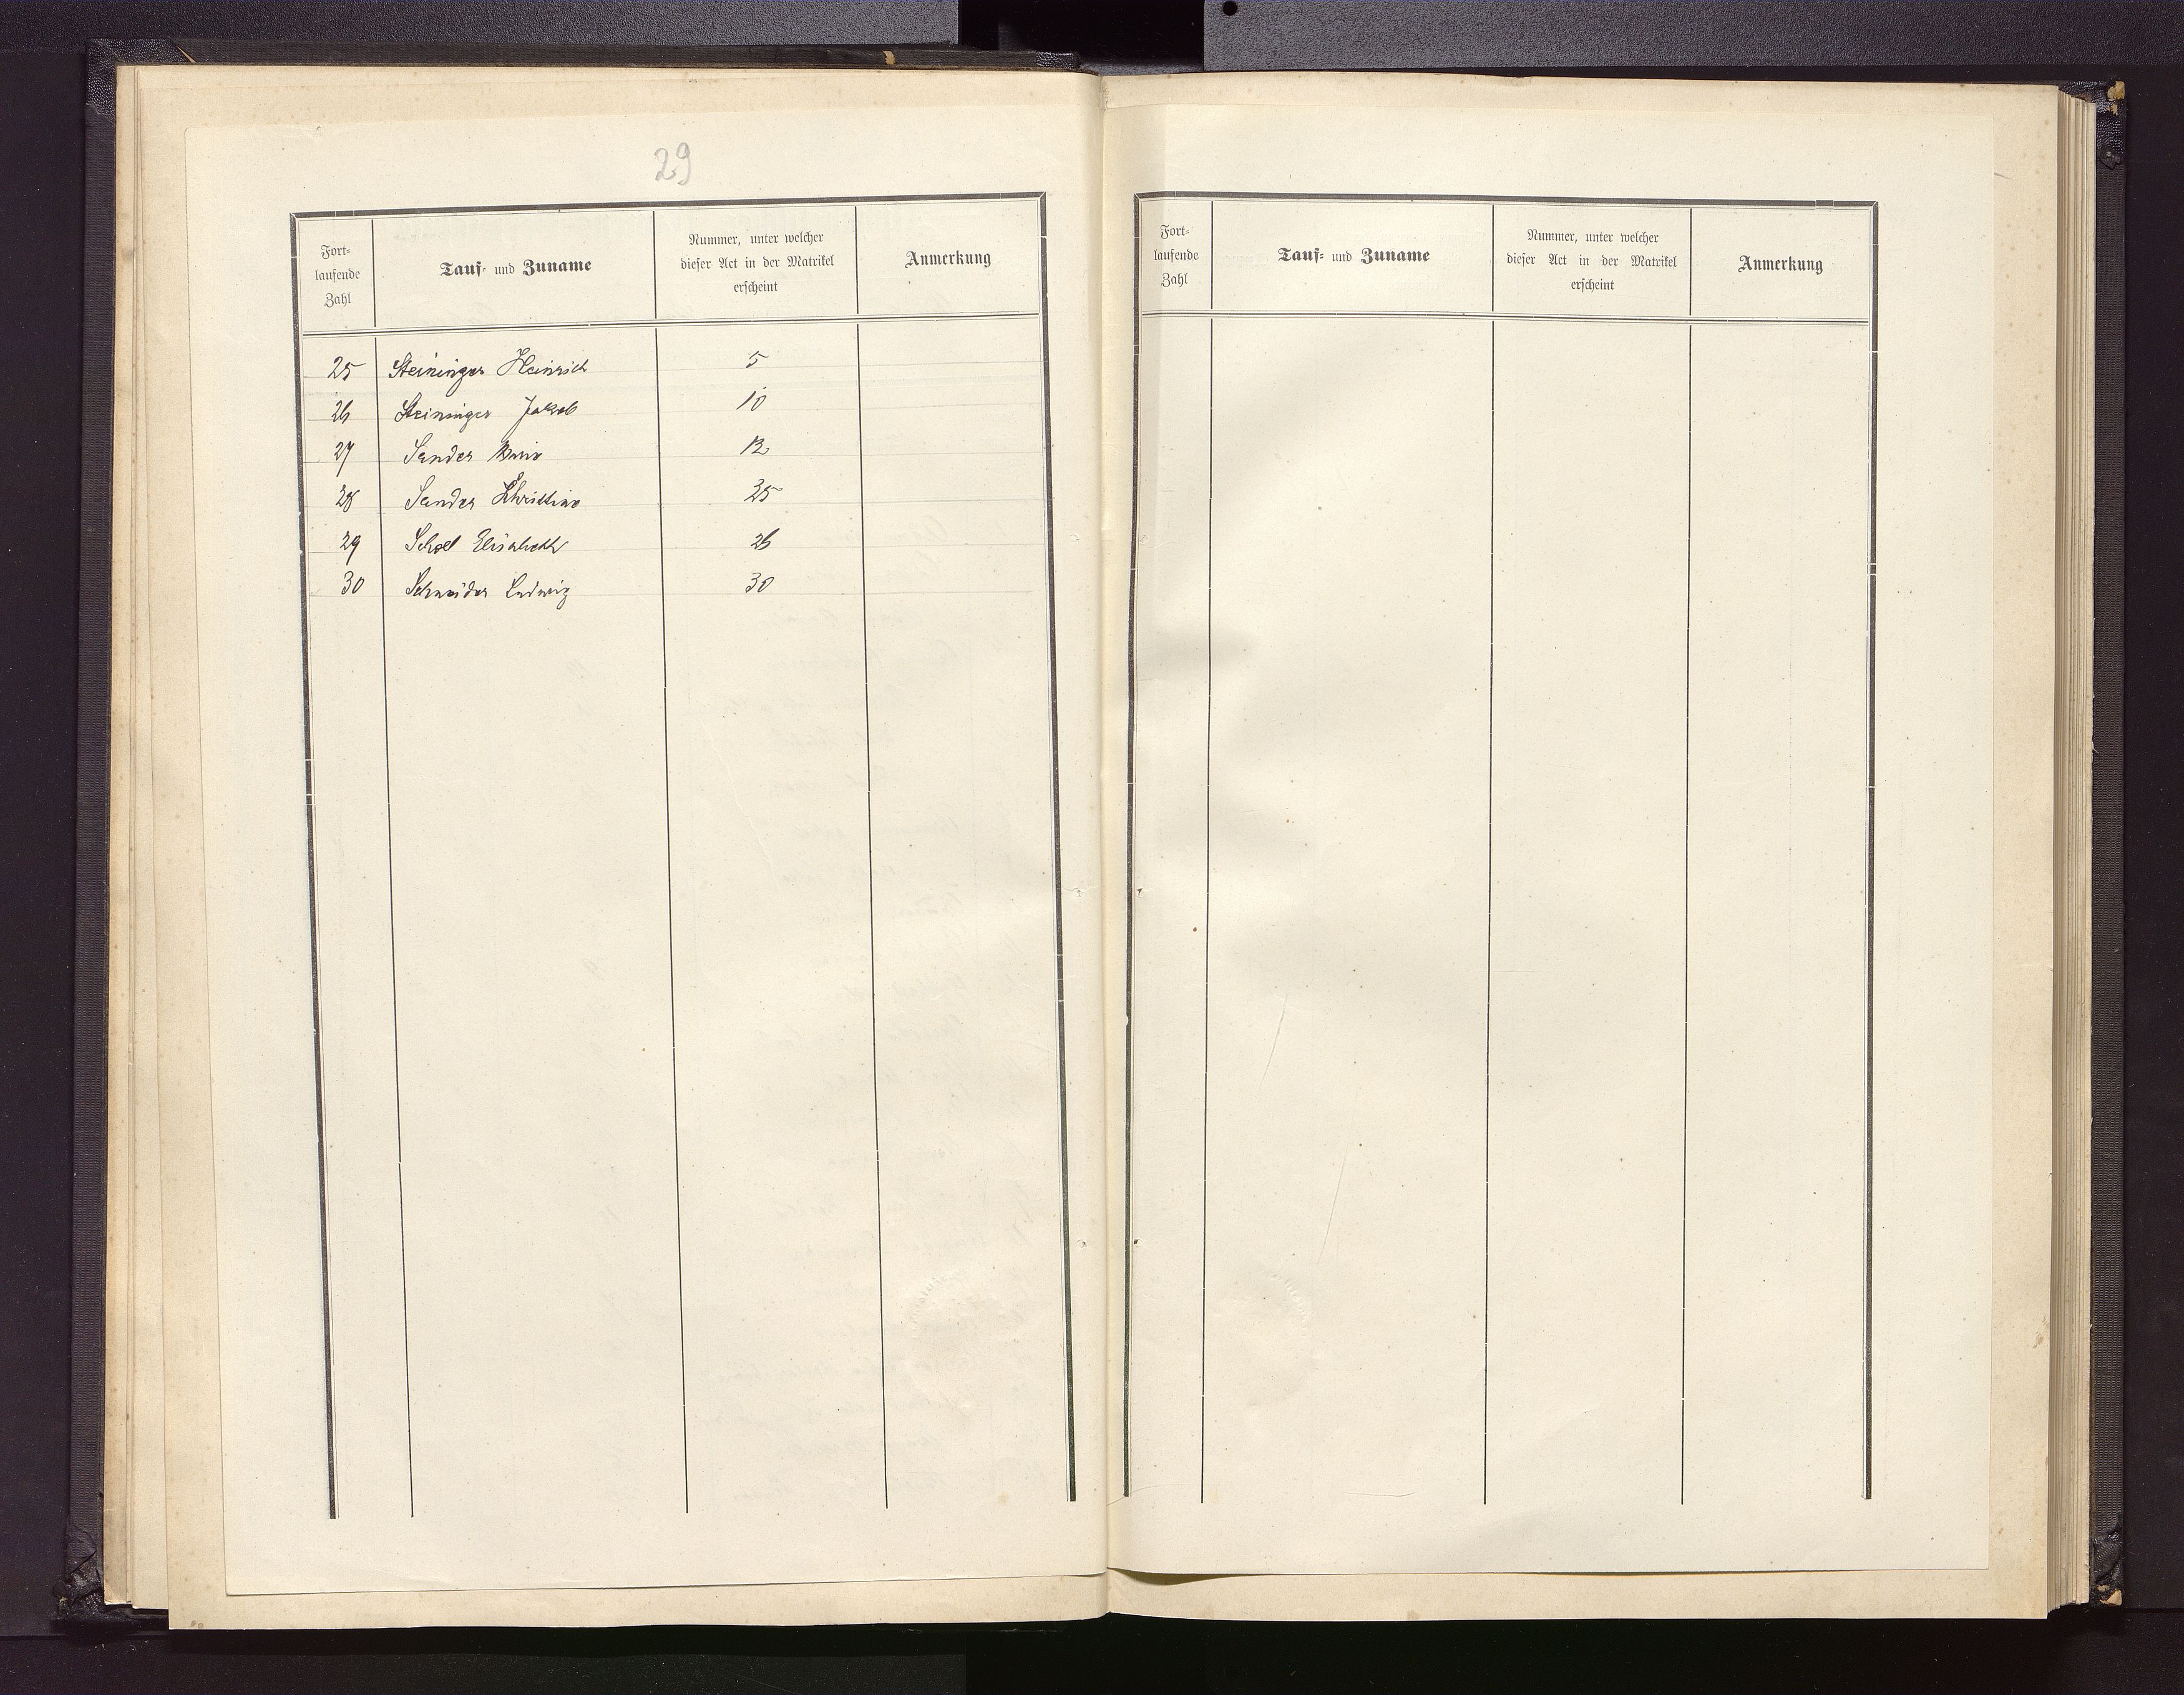 29
Fort-
laufende
Zahl
Tauf- und Zuname
Nummer, unter welcher
dieser Act in der Matrikel
erscheint
Anmerkung
25 Steininger Heinrich 5
26 Steininger Jakob 10
27 Sander 12
28 Sander Christine 25
29 Scholl Elisabeth 26
30 Schneider Ludwig 30
Fort-
laufende
Zahl
Tauf- und Zuname
Nummer, unter welcher
dieser Act in der Matrikel
erscheint
Anmerkung